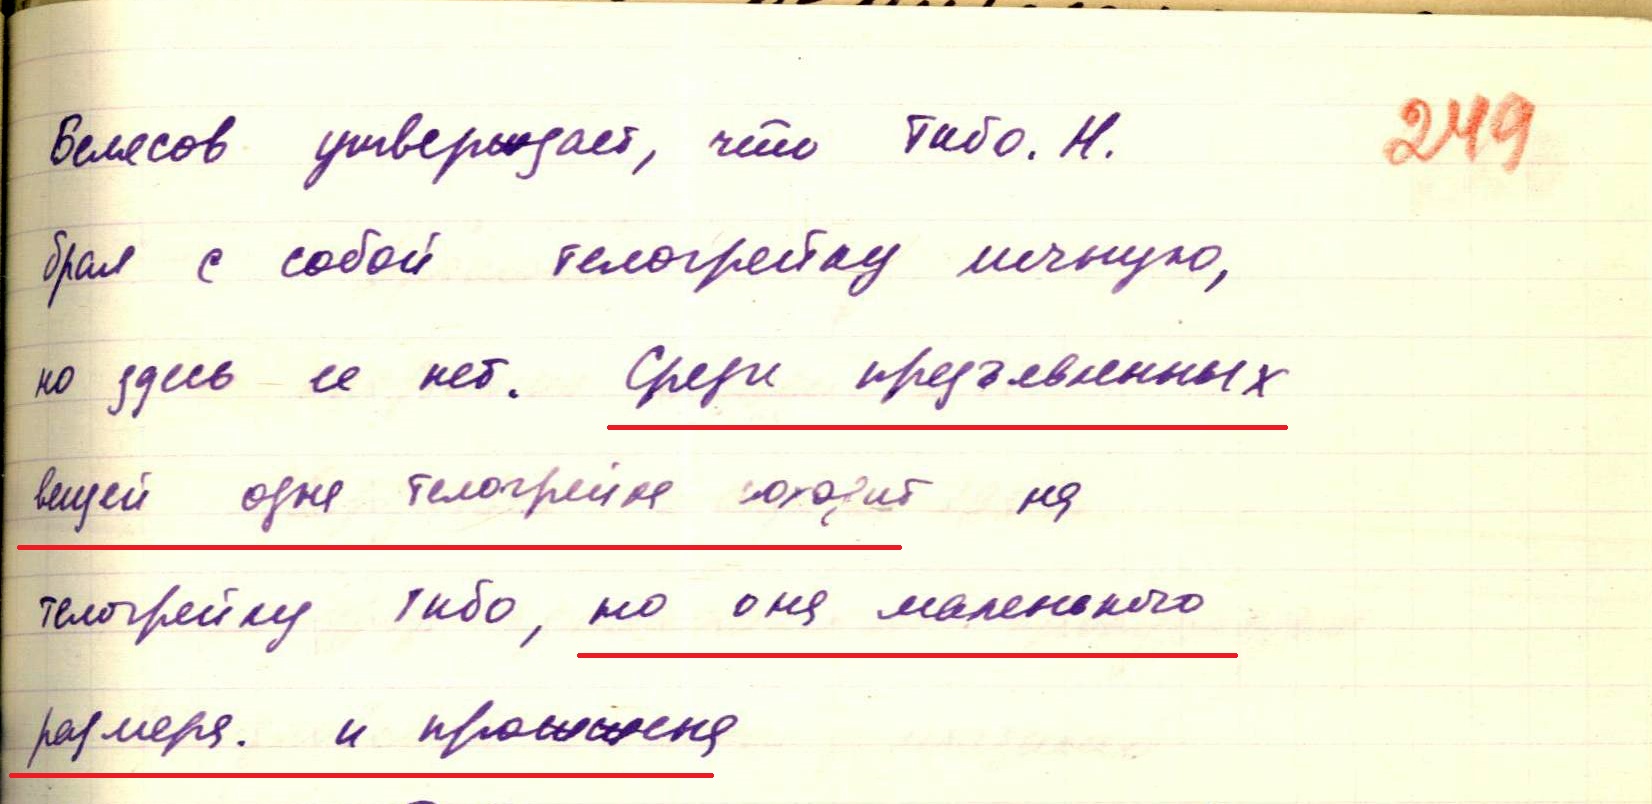 249
Белесов утверждает, что Тибо. Н.
брал с собой телогрейку личную,
но здесь ее нет. Среди предъявленных
вещей одна телогрейка походит на
телогрейку Тибо, но она маленького
размера. и прошшена